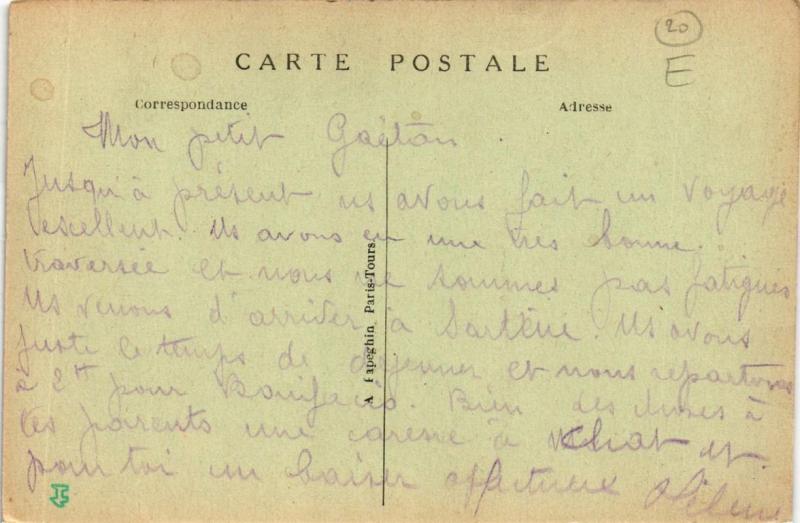 20
E
CARTE POSTALE
Correspondance
Adresse
Mon petit Gaëtan.
Jusqu'à présent ns avons fait un voyage
excellent. Ns avons eu une très bonne
traversée et nous ne sommes pas fatigués
Ns venons d'arriver à Sartène. Ns avons
juste le temps de déjeuner et nous repartons
à 2H pour Bonifacio. Bien des choses à
tes parents une caresse à Khat et
pour toi un baiser affectueux Hélène
A Papeghin Paris-Tours.